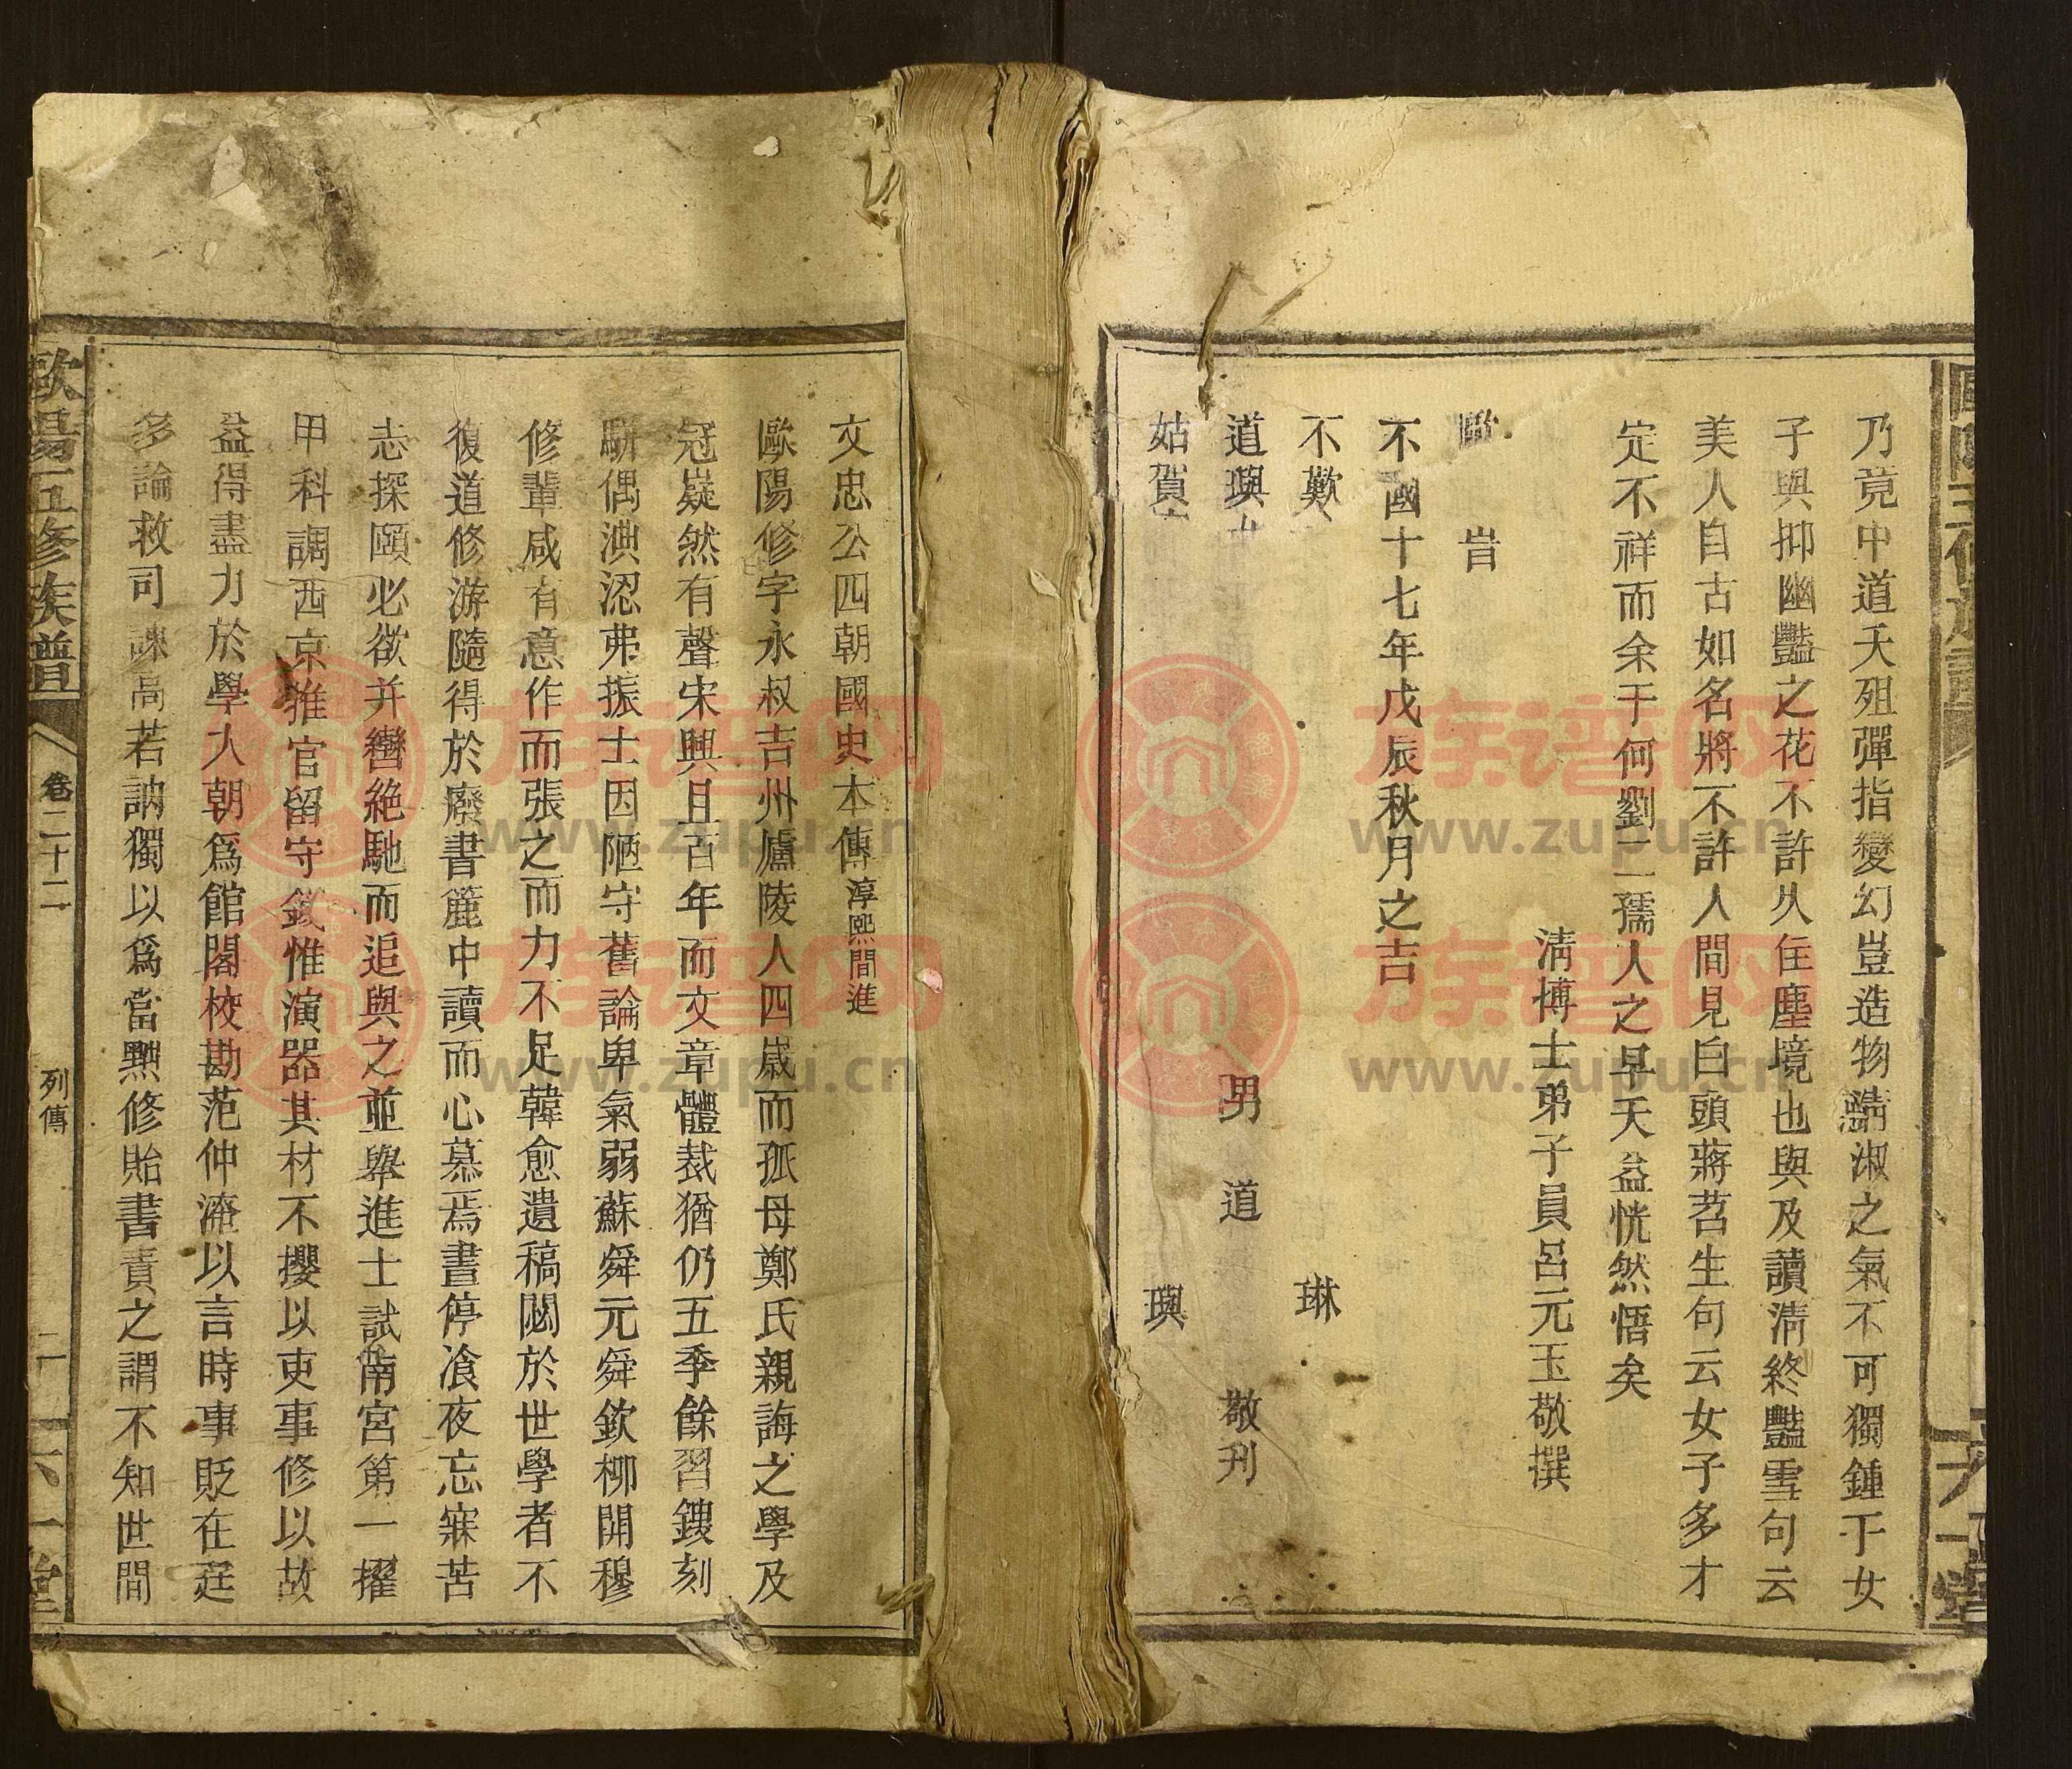 乃竟中道夭殂彈指變幻豈造物淸淑之氣不可獨鍾于女
子與抑幽豔之花不許久住塵境也與及讀淸終豔雪句云
美人自古如名將不許人間見白頭蔣苕生句云女子多才
定不祥而余于何劉二孺人之早夭益恍然悟矣
淸博士弟子員呂元玉敬撰
國十七年戊辰秋月之吉
不歎 琳
道璵 男道 敬刊
姑賀 璵
文忠公四朝國史本傳淳熙間進
歐陽修字永叔吉州廬陵人四歲而孤母鄭氏親誨之學及
冠嶷然有聲宋興且百年而文章體裁猶仍五季餘習鎪刻
駢偶淟涊弗振士因陋守舊論卑氣弱蘇舜元舜欽柳開穆
修輩咸有意作而張之而力不足韓愈遺稿閟於世學者不
復道修游隨得於廢書簏中讀而心慕焉晝停飡夜忘寐苦
志探頤必欲并轡絶馳而追與之並舉進士試南宮第一擢
甲科調西京推官留守錢惟演器其材不攖以吏事修以故
益得盡力於學入朝爲館閣校勘范仲淹以言時事貶在廷
多論救司諫高若訥獨以爲當黜修貽書責之謂不知世間
歐陽五修族普
卷二十二
列傳
二
六一堂
族谱网
www.zupu.cn
族谱网
www.zupu.cn
族谱网
www.zupu.cn
族谱网
www.zupu.cn